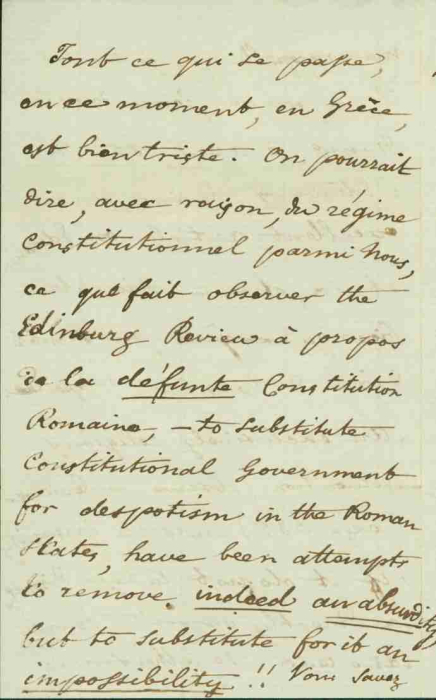 Tout ce qui se passe,
en ce moment, en Grèce,
est bien triste. On pourrait
dire, avec raison, du régime
Constitutionnel parmi nous,
ce que fait observer the
Edinburg Review à propos
de la défunte Constitution
Romaine, – to substitute
Constitutional Government
for despotism in the Roman
States, have been attempts
to remove indeed an absurdity
but to substitute for it an
impossibility !! Vous savez